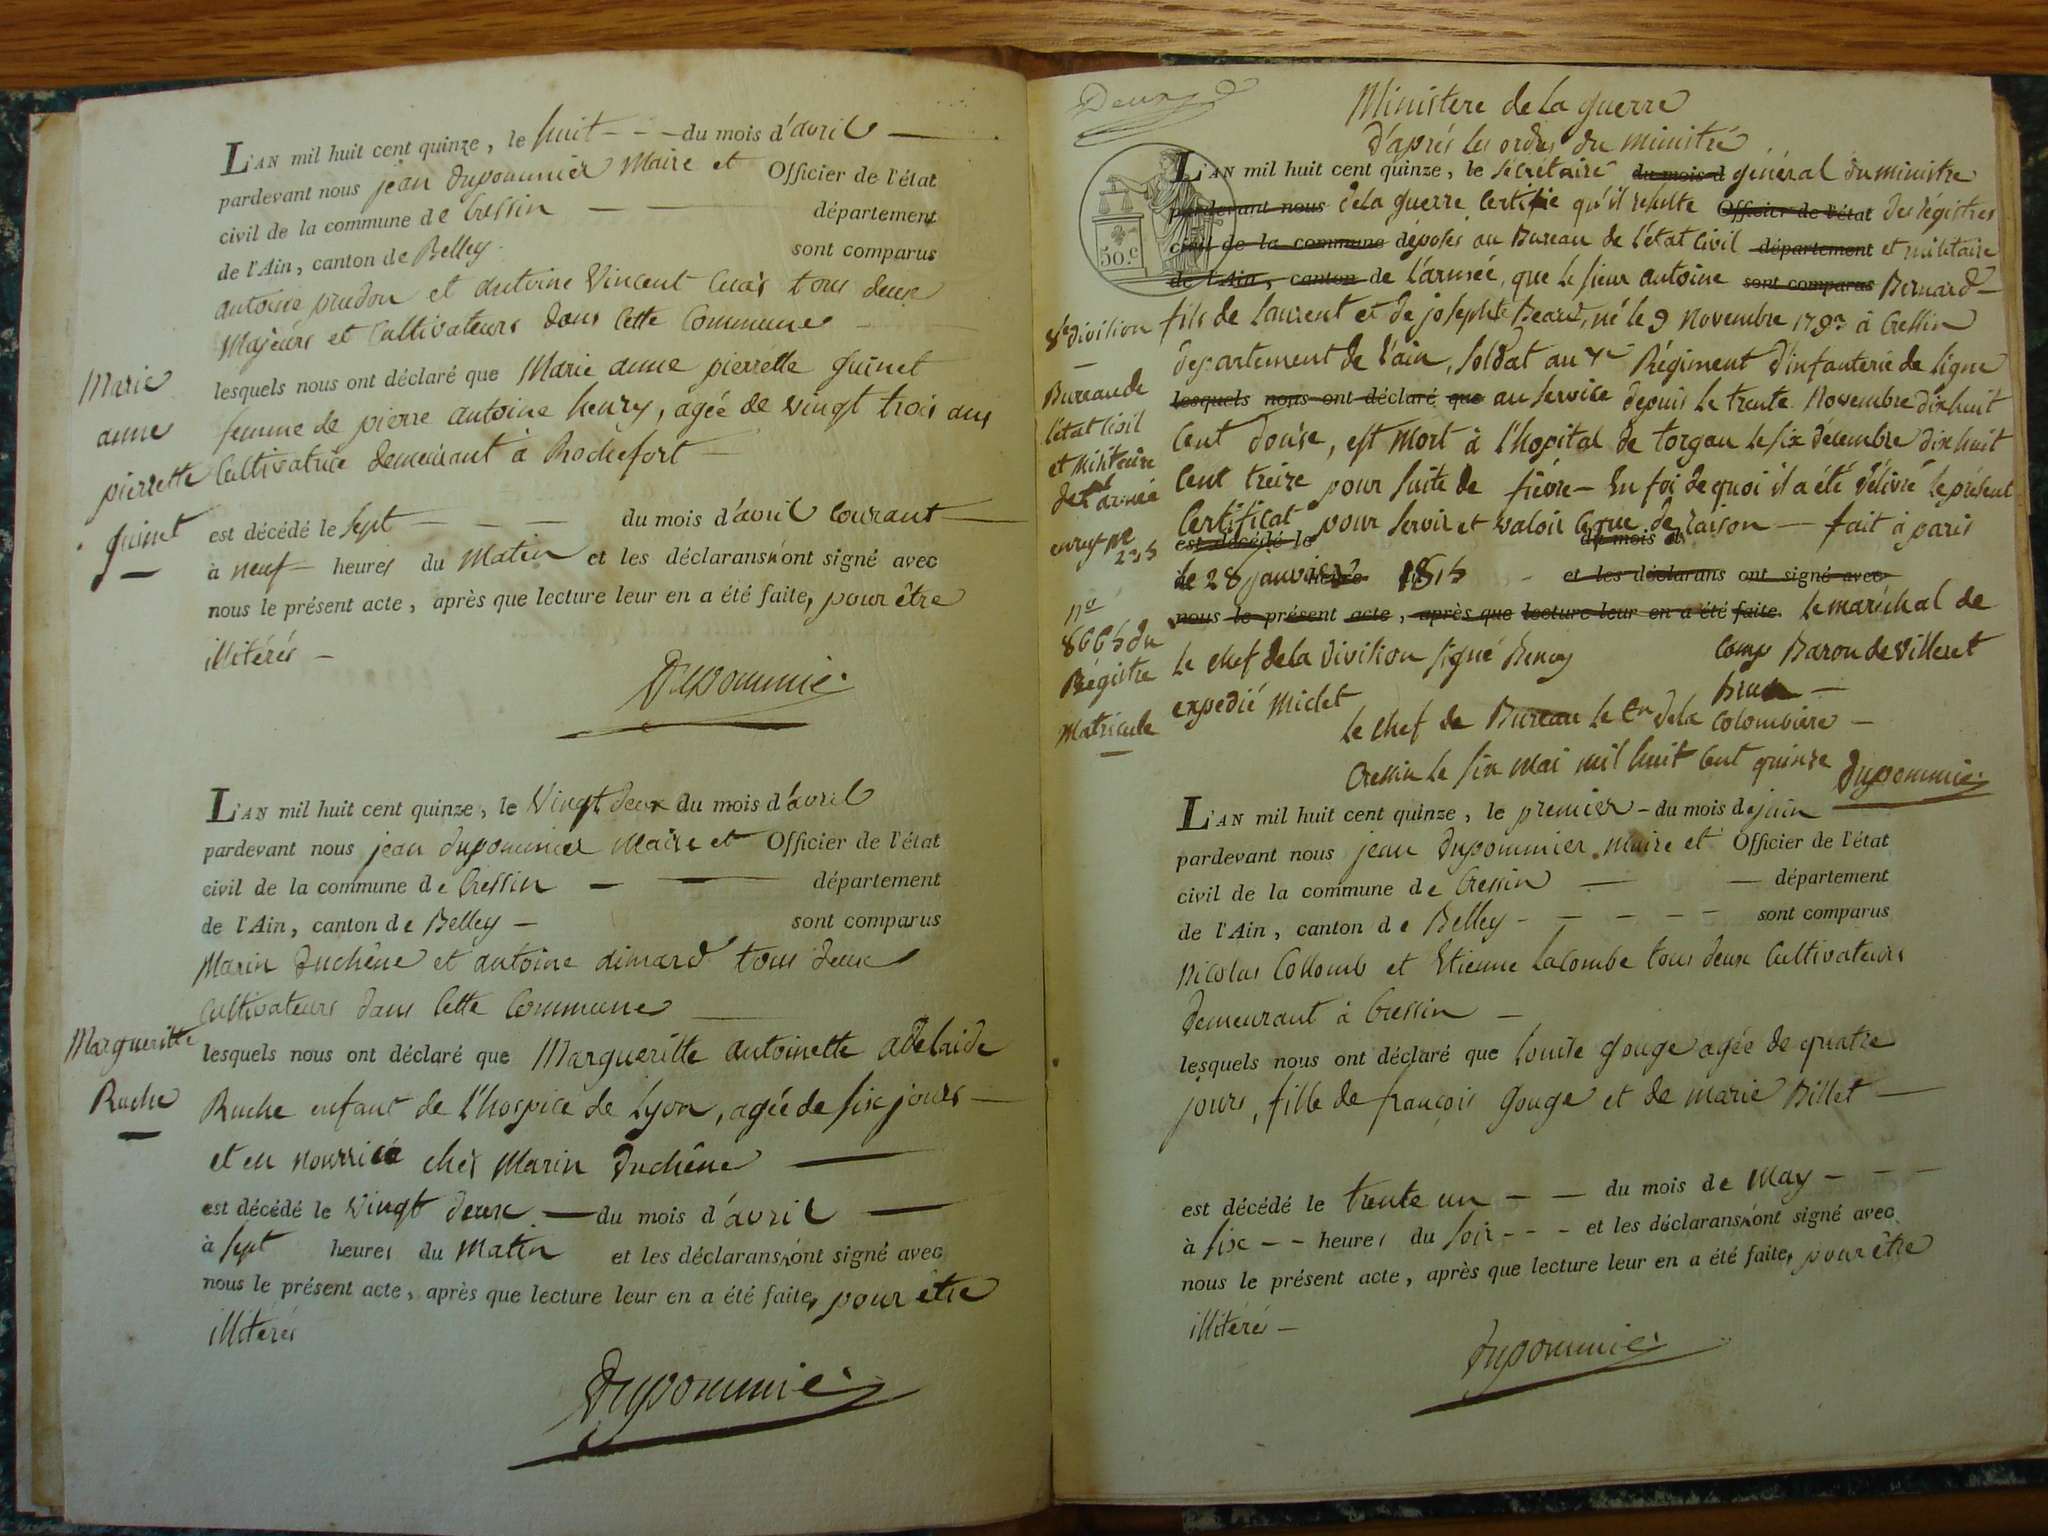 L'AN mil huit cent quinze, le huit - - - du mois d'avril
pardevant nous jean Dupommier Maire et Officier de l'état
civil de la commune de Cressin département
de l'Ain, canton de Belley sont comparus
antoine prudon et antoine Vincent tous deux
Majeurs et Cultivateurs dans Cette Commune
lesquels nous ont déclaré que Marie anne pierrette guinet
femme de pierre antoine henry, agée de vingt trois ans
Cultivatrice demeurant à Rochefort
Marie
anne
pierrette
guinet
est décédé le sept - - - du mois d'avril courant
à neuf heures du Matin et les déclarans n'ont signé avec
nous le présent acte, après que lecture leur en a été faite, pour être
illitérés
Dupommier
L'AN mil huit cent quinze, le Vingt deux du mois d'avril
pardevant nous jean Dupommier Maire et Officier de l'état
civil de la commune de Cressin département
de l'Ain, canton de Belley sont comparus
Marin Duchêne et antoine dimard tous deux
Cultivateurs dans Cette Commune
lesquels nous ont déclaré que Margueritte antoinette adelaide
Ruche enfant de l'hospice de Lyon, agée de six jours
et en nourrice chez Marin Duchêne
Margueritte
Ruche
est décédé le Vingt deux du mois d'avril
à sept heures du Matin et les déclarans n'ont signé avec
nous le présent acte, après que lecture leur en a été faite, pour être
illitérés
Dupommier
Deux
Ministere de la guerre
D'après les ordres du ministre
L'AN mil huit cent quinze, le secrétaire du mois d général du ministre
pardevant nous de la guerre Certifie qu'il résulte Officier de l'état des régistres
civil de la commune déposés au Bureau de l'état Civil département et militaire
de l'Ain, canton de l'armée, que le sieur antoine sont comparus Bernard
50.c
fils de Laurent et de josephte Beard, né le 9 Novembre 1793 à Cressin
departement de l'ain, soldat au Régiment d'infanterie de ligne
lesquels nous ont déclaré que au service depuis le trente Novembre dix huit
Cent douse, est mort à l'hopital de torgau le six decembre dix huit
Cent treize pour suite de fiévre - En foi de quoi il a été délivré le présent
Certificat pour servir et valoir ce que de raison - fait à paris
est décédé le du mois d
le 28 janvier heures 1815 et les déclarans ont signé avec
nous le présent acte, après que lecture leur en a été faite. le maréchal de
Camp Baron de Villeret
le chef de la Division signé
expedié Miclet
le chef de Bureau le de la Colombiere
Cressin le six mai mil huit Cent quinze Dupommier
8e division
Bureau de
l'état civil
et Militaire
de l'armée
n°
8665 du
Régistre
Matricule
L'AN mil huit cent quinze, le premier - du mois de juin
pardevant nous jean Dupommier maire et Officier de l'état
civil de la commune de Cressin département
de l'Ain, canton de Belley - - - - - sont comparus
Nicolas Collomb et Etienne Lacombe tous deux Cultivateurs
demeurant à Cressin
lesquels nous ont déclaré que Louise gouge agée de quatre
jours, fille de françois gouge et de marie Billet
est décédé le trente un - - du mois de May - - -
à six - - heures du soir - - - et les déclarans n'ont signé avec
nous le présent acte, après que lecture leur en a été faite, pour être
illitérés
Dupommier